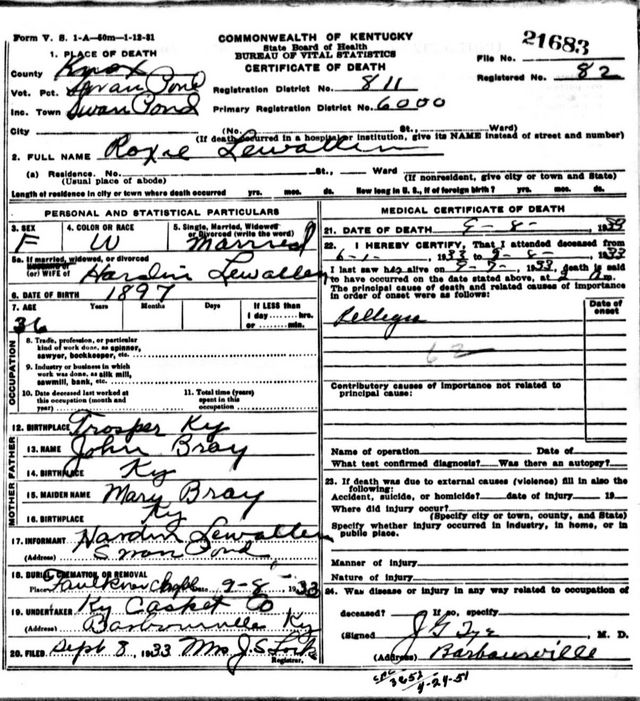 Form V. S. 1-A—50m—1-12-31
COMMONWEALTH OF KENTUCKY
State Board of Health
BUREAU OF VITAL STATISTICS
CERTIFICATE OF DEATH
File No. 21683
Registered No. 82
1. PLACE OF DEATH
County Knox
Vot. Pct. Swan Pond
Registration District No. 811
Inc. Town Swan Pond
Primary Registration District No. 6000
City (No. St., Ward)
(If death occurred in a hospital or institution, give its NAME instead of street and number)
2. FULL NAME Roxie Lewallen
(a) Residence. No. St., Ward
(Usual place of abode) (If nonresident, give city or town and State)
Length of residence in city or town where death occurred yrs. mos. ds. How long in U. S., if of foreign birth? yrs. mos. ds.
PERSONAL AND STATISTICAL PARTICULARS
3. SEX 4. COLOR OR RACE 5. Single, Married, Widowed
or Divorced (write the word)
F W Married
5a. If married, widowed, or divorced
HUSBAND of
(or) WIFE of Hardin Lewallen
6. DATE OF BIRTH 1897
7. AGE Years Months Days If LESS than
1 day hrs.
or min.
36
OCCUPATION
8. Trade, profession, or particular
kind of work done, as spinner,
sawyer, bookkeeper, etc.
9. Industry or business in which
work was done, as silk mill,
sawmill, bank, etc.
10. Date deceased last worked at
this occupation (month and
year)
11. Total time (years)
spent in this
occupation
12. BIRTHPLACE Trosper Ky
FATHER
13. NAME John Bray
14. BIRTHPLACE Ky
MOTHER
15. MAIDEN NAME Mary Bray
16. BIRTHPLACE Ky
17. INFORMANT Hardin Lewallen
(Address) Swan Pond
18. BURIAL, CREMATION, OR REMOVAL
Place Faulkner Date 9-8- 1933
19. UNDERTAKER Ky Casket Co
(Address) Barbourville Ky
20. FILED Sept 8, 1933 Mrs J. S. Lock
Registrar.
MEDICAL CERTIFICATE OF DEATH
21. DATE OF DEATH 9-8- 1933
22. I HEREBY CERTIFY, That I attended deceased from
6-1- , 1933 to 9-8- , 1933
I last saw h alive on 9-9- , 1933, death is said
to have occurred on the date stated above, at m.
The principal cause of death and related causes of importance
in order of onset were as follows:
Date of
onset
Pellegra
62
Contributory causes of importance not related to
principal cause:
Name of operation Date of
What test confirmed diagnosis? Was there an autopsy?
23. If death was due to external causes (violence) fill in also the
following:
Accident, suicide, or homicide? date of injury 19
Where did injury occur?
(Specify city or town, county, and State)
Specify whether injury occurred in industry, in home, or in
public place.
Manner of injury
Nature of injury
24. Was disease or injury in any way related to occupation of
deceased? If so, specify
(Signed) J G Tye M. D.
(Address) Barbourville
4-24-51